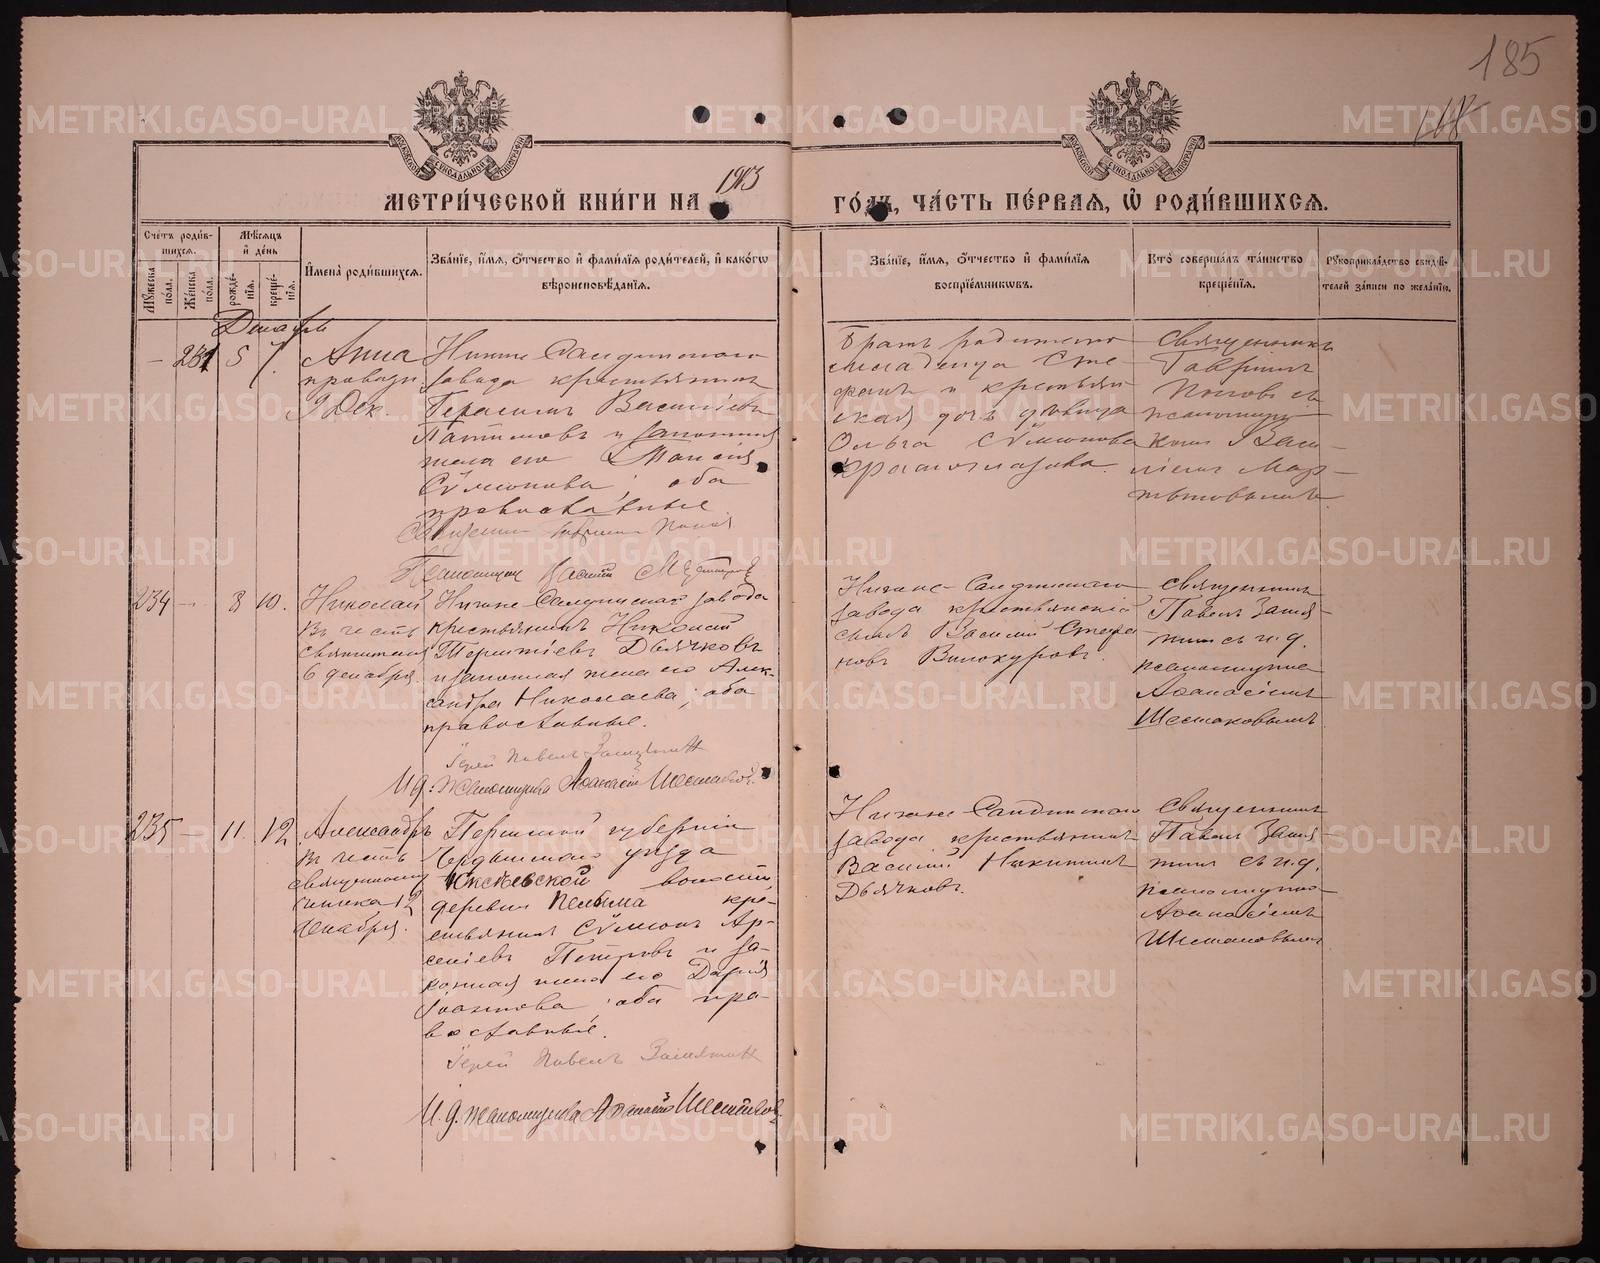 185
168
МЕТРИ́ЧЕСКОЙ КНИ́ГИ НА 1913
ГО́ДЪ, ЧА́СТЬ ПЕ́РВАЯ, Ѡ҆ РОДИ́ВШИХСЯ.
Сче́тъ роди́в-
шихся.
Му́жеска по́ла.
Же́нска по́ла.
Мѣ́сяцъ
и҆ де́нь
рожде́-
нїя.
креще́-
нїя.
И҆мена̀ роди́вшихся.
Зва́нїе, и҆́мя, ѻ҆́тчество и҆ фами́лїя роди́телей, и҆ како́гѡ
вѣроисповѣ́данїя.
Зва́нїе, и҆́мя, ѻ҆́тчество и҆ фами́лїя
воспрїе́мникѡвъ.
Кто̀ соверша́лъ та́инство
креще́нїя.
Рꙋкоприкла́дство свидѣ́-
телей за́писи по жела́нїю.
Декабрь
— 231 5 7.
Анна
праведн.
9 Дек.
Нижне-Салдинскаго
завода крестьянинъ
Герасимъ Васильевъ
и законная
жена его
Сѵмеонова, оба
православные
Священникъ Гавриилъ Поповъ
Псаломщикъ Василій
Братъ родителя
младенца Сте-
фанъ и крестьян-
ская дочь дѣвица
Ольга Сѵмеонова
Красноглазова.
Священникъ
Гавріилъ
Поповъ съ
псаломщи-
комъ Васи-
ліемъ Мар-
234 — 8 10.
Николай
въ честь
святителя
6 декабря.
Нижне-Салдинскаго завода
крестьянинъ Николай
Терентіевъ Дьячковъ
и законная жена его Алек-
сандра Николаева, оба
православные.
Іерей Павелъ Замятинъ
И. д. псаломщика Аѳанасій Шестаковъ.
Нижне-Салдинскаго
завода крестьянскій
сынъ Василій Стефа-
новъ Винокуровъ.
Священникъ
Павелъ Замя-
тинъ съ и. д.
псаломщика
Аѳанасіемъ
Шестаковымъ
235 — 11. 12.
Александръ
въ честь
священному-
ченика 12
декабря.
Пермской губерніи
Чердынскаго уѣзда
Юксѣевской волости,
деревни Пелыма кре-
стьянинъ Сѵмеонъ Ар-
сеніевъ Петровъ и за-
конная жена его Дарія
Іоаннова, оба пра-
вославные.
Іерей Павелъ Замятинъ
И. д. псаломщика Аѳанасій Шестаковъ
Нижне-Салдинскаго
завода крестьянинъ
Василій Никитинъ
Дьячковъ.
Священникъ
Павелъ Замя-
тинъ съ и. д.
псаломщика
Аѳанасіемъ
Шестаковымъ